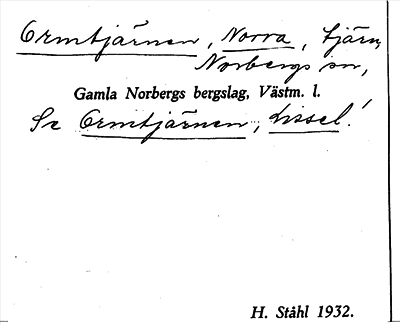 Ormtjärnen, Norra, tjärn,
Norbergs sn,
Gamla Norbergs bergslag, Västm. l.
Se Ormtjärnen, Lissel!
H. Ståhl 1932.